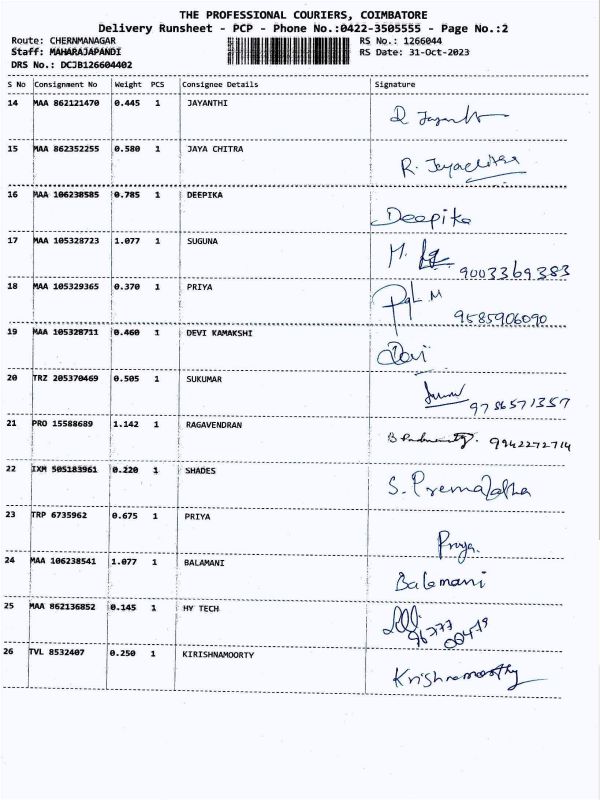 THE PROFESSIONAL COURIERS, COIMBATORE
Delivery Runsheet - PCP - Phone No.:0422-3505555 - Page No.:2
Route: CHERNMANAGAR RS No.: 1266044
Staff: MAHARAJAPANDI RS Date: 31-Oct-2023
DRS No.: DCJB126604402
S No Consignment No Weight PCS Consignee Details Signature
14 MAA 862121470 0.445 1 JAYANTHI
15 MAA 862352255 0.580 1 JAYA CHITRA
R. Jayachitra
16 MAA 106238585 0.785 1 DEEPIKA
Deepika
17 MAA 105328723 1.077 1 SUGUNA
M.
9003369383
18 MAA 105329365 0.370 1 PRIYA
M
9585906090
19 MAA 105328711 0.460 1 DEVI KAMAKSHI
Devi
20 TRZ 205370469 0.505 1 SUKUMAR
9786571357
21 PRO 15588689 1.142 1 RAGAVENDRAN
9942272714
22 IXM 505183961 0.220 1 SHADES
S. Premalatha
23 TRP 6735962 0.675 1 PRIYA
Priya.
24 MAA 106238541 1.077 1 BALAMANI
Balamani
25 MAA 862136852 0.145 1 HY TECH
26 TVL 8532407 0.250 1 KIRISHNAMOORTY
Krishnamoorthy